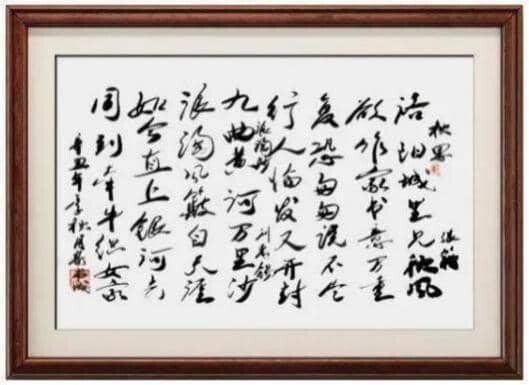 秋思 张籍
洛阳城里见秋风
欲作家书意万重
复恐匆匆说不尽
行人临发又开封
浪淘沙 刘禹锡
九曲黄河万里沙
浪淘风簸自天涯
如今直上银河去
同到牵牛织女家
辛丑年季秋